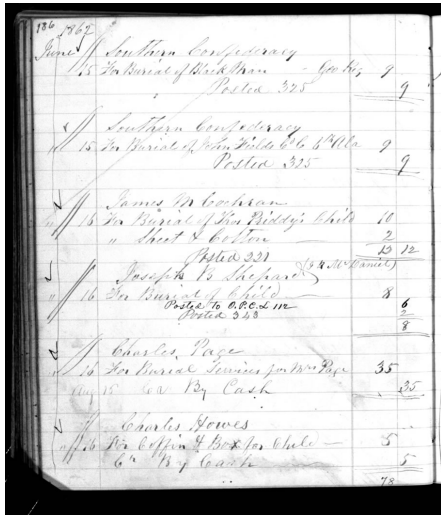 186 1862
June // Southern Confederacy
15 For Burial of Black Man - Geo 9
" Posted 325 9
Southern Confederacy
15 For Burial of John Fields Co C 6th Ala 9
Posted 325 9
James M Cochran
" 16 For Burial of Priddy's Child 10
" Sheet & Cotton 2
Posted 221 12 12
Joseph B Shepard (J H McDaniel)
" 16 For Burial of Child 8
Posted to O.P.C.L 112 6
Posted 343 2
8
Charles Page
" 16 For Burial Services for Mrs Page 35
Aug 15 Cr By Cash 35
Charles Howes
16 For Coffin & Box for Child 5
Cr By Cash 5
78